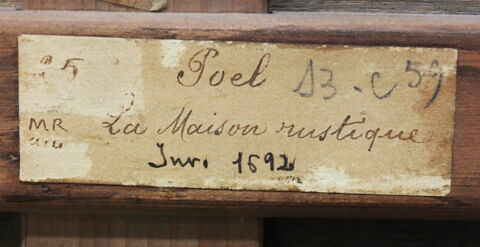 25 Poel 13-C 59
MR La Maison rustique
Inv. 1692